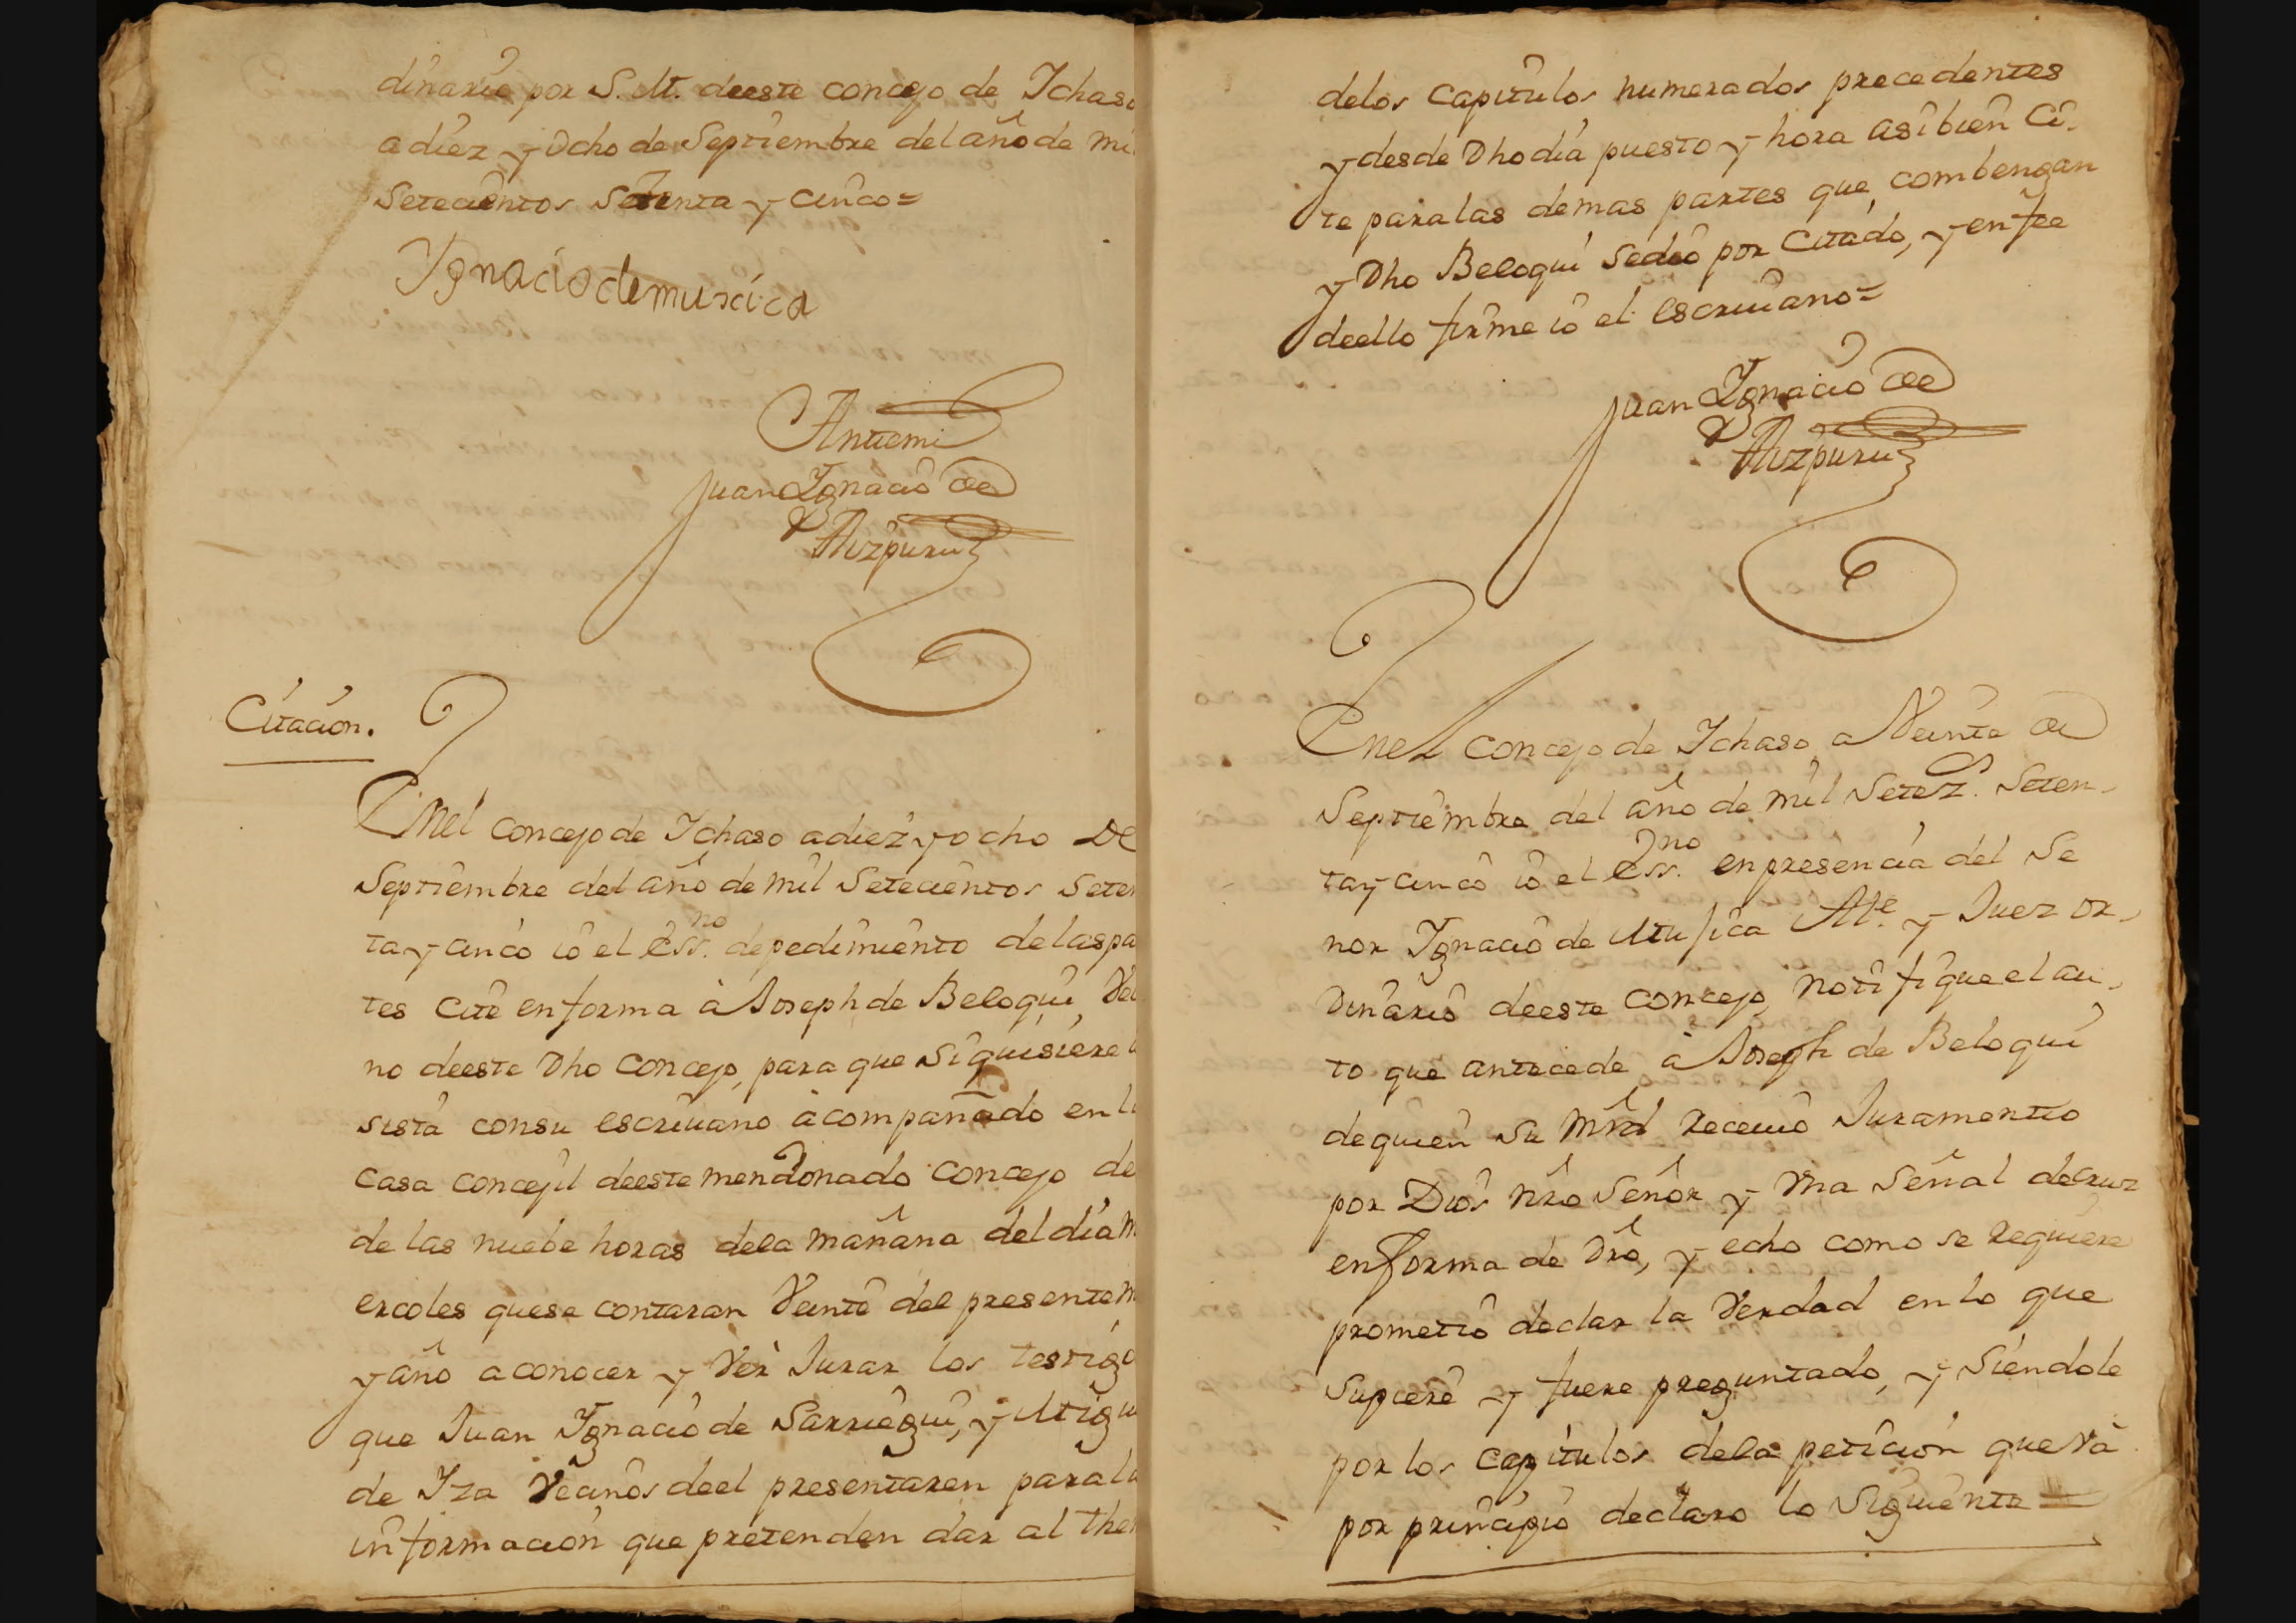 dinario por S. M. deeste concejo de Ichaso
a diez y Ocho de Septiembre del año de mi
Setecientos Setenta y cinco=
Ygnacio de muxica
Antemi
Juan Ygnacio de
Aizpuru
Citacion.
Enel concejo de Ichaso a diez y ocho De
Septiembre del año de mil Setecientos Seten
ta y cinco io el Ess.no de pedimiento de las pa
tes Cite en forma à Joseph de Beloqui, Vei
no deeste Dho Concejo, para que Si quisiere
sista con su escriuano àcompañado en la
Casa Concejil deeste mencionado Concejo de
de las nuebe horas dela mañana del dia M
ercoles que se contaran Veinte del presente m
y año a conocer y Ver Jurar los testigo
que Juan Ygnacio de Sarriegui, y Migu
de Iza Vecinos deel presentaren para la
informacion que pretenden dar al then
delos Capitulos numerados precedentes
y desde Dho dia puesto y hora asi bien Ci-
te para las demas partes que combengan
y Dho Beloqui sedio por Citado, y en fee
deello firme io el escriuano=
Juan Ygnacio de
Aizpuru
Enel Concejo de Ichaso a Veinte de
Septiembre del año de mil Setez.s Seten-
ta y cinco io el Ess.no en presencia del Se
ñor Ygnacio de Mujica Al.e y Juez or-
Dinario deeste Concejo, notifique el au-
to que antecede à Joseph de Beloqui
de quien su Mrd Receuio Juramentio
por Dios nro Señor y Vna Señal de Cruz
en forma de Dro, y echo como se Requiere
prometio declar la Verdad en lo que
Supiere y fuere preguntado, y Siendole
por los Capitulos dela peticion que Và
por principio declaro lo Siguiente=